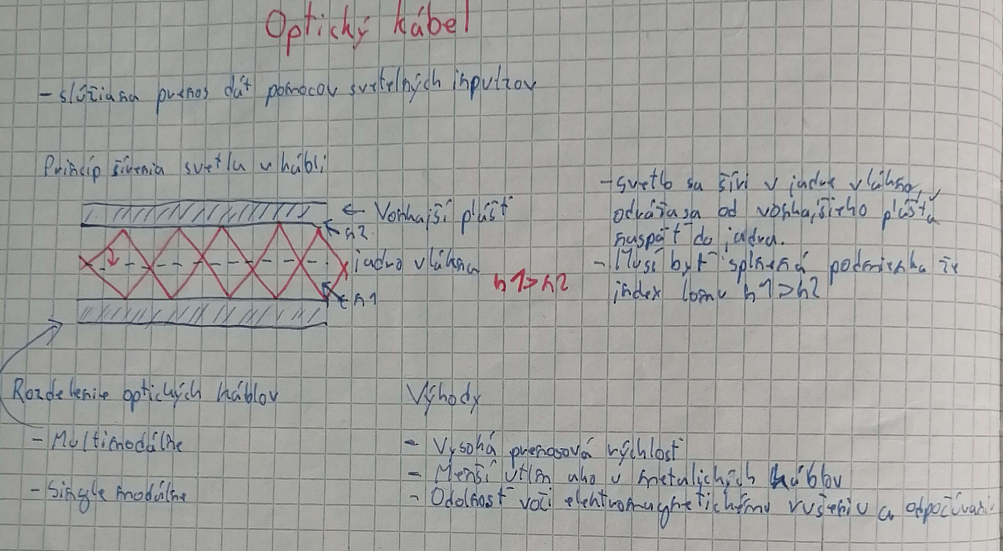 Optický kábel
- slúži na prenos dát pomocov svetelných inpulzov
Princíp šírenia svetla v kábli
← Vonkajší plášť
n2
jadro vlákna
n1
n1>n2
- svetlo sa šíri v jadre vlákna,
odráža sa od vonkajšieho plášťa
naspäť do jadra.
- Musí byť splnená podmienka že
index lomu n1>n2
Rozdelenie optických káblov
- Multimodálne
- Single modálne
Výhody
- Vysoká prenosová rýchlosť
- Menší útlm ako u metalických káblov
- Odolnosť voči elektromagnetickému rušeniu a odpočúvaniu